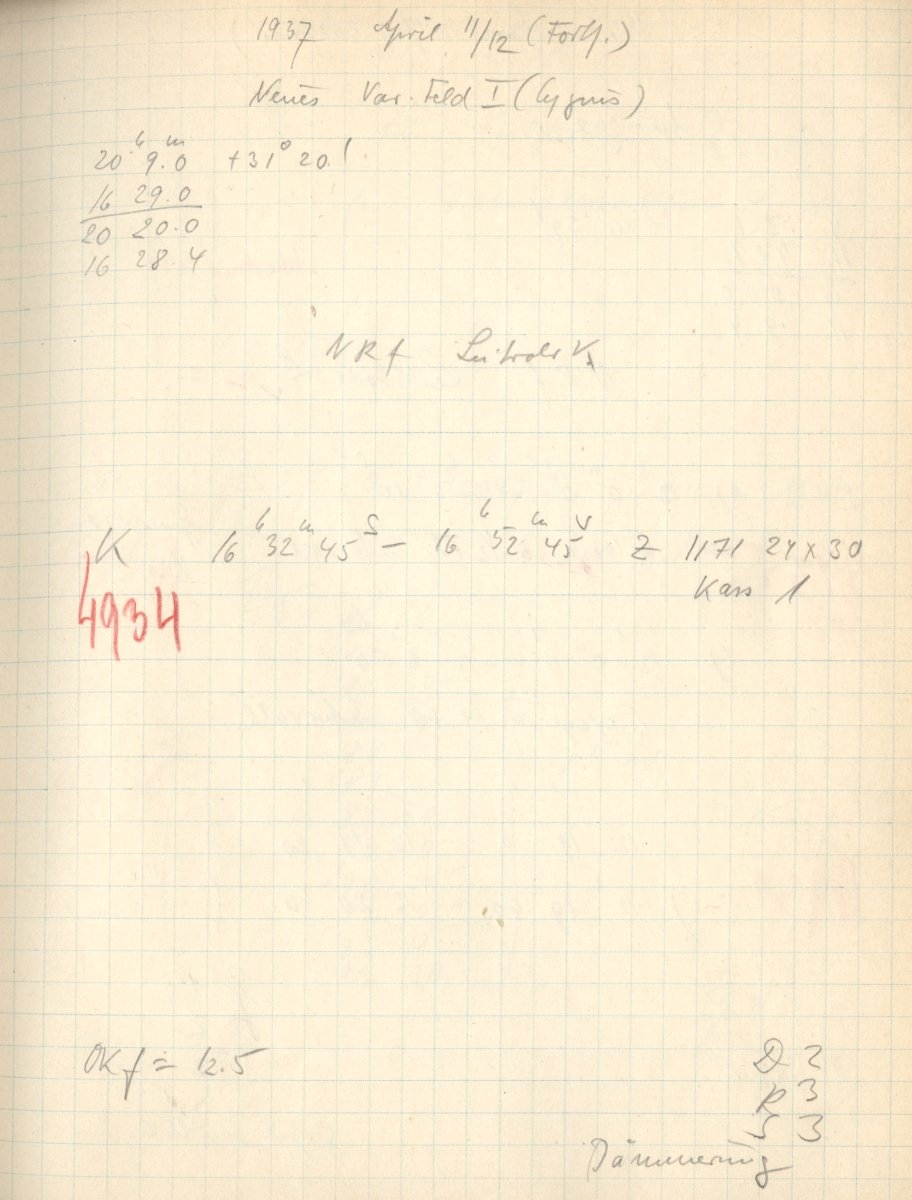 1937 April 11/12 (Forts.)
Neues Var. Feld I (Cygnus)
20h 9.0m +31° 20!
16 29.0
20 20.0
16 28.4
NRf
K 16h 32m 45s – 16h 52m 45s Z 1171 24 x 30
Kass 1
4934
OKf = 12.5
D 2
R 3
S 3
Dämmerung